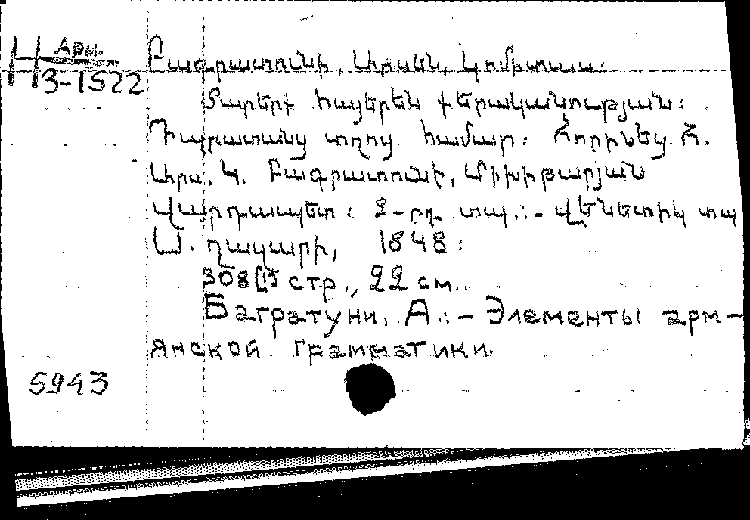 Арм.
3-1522
Բագրատունի, Արսեն, Կոմիտաս.
Տարերք հայերեն քերականության:
Դպրատանց տղոց համար: Հորինեց Հ.
Արս. Կ. Բագրատունի, Մխիթարյան
Վարդապետ: 2-րդ տպ.:- Վենետիկ տպ
Ս. Ղազարի, 1848:
308 стр., 22 см.
Багратуни, А.:- Элементы арм-
янской грамматики
5943